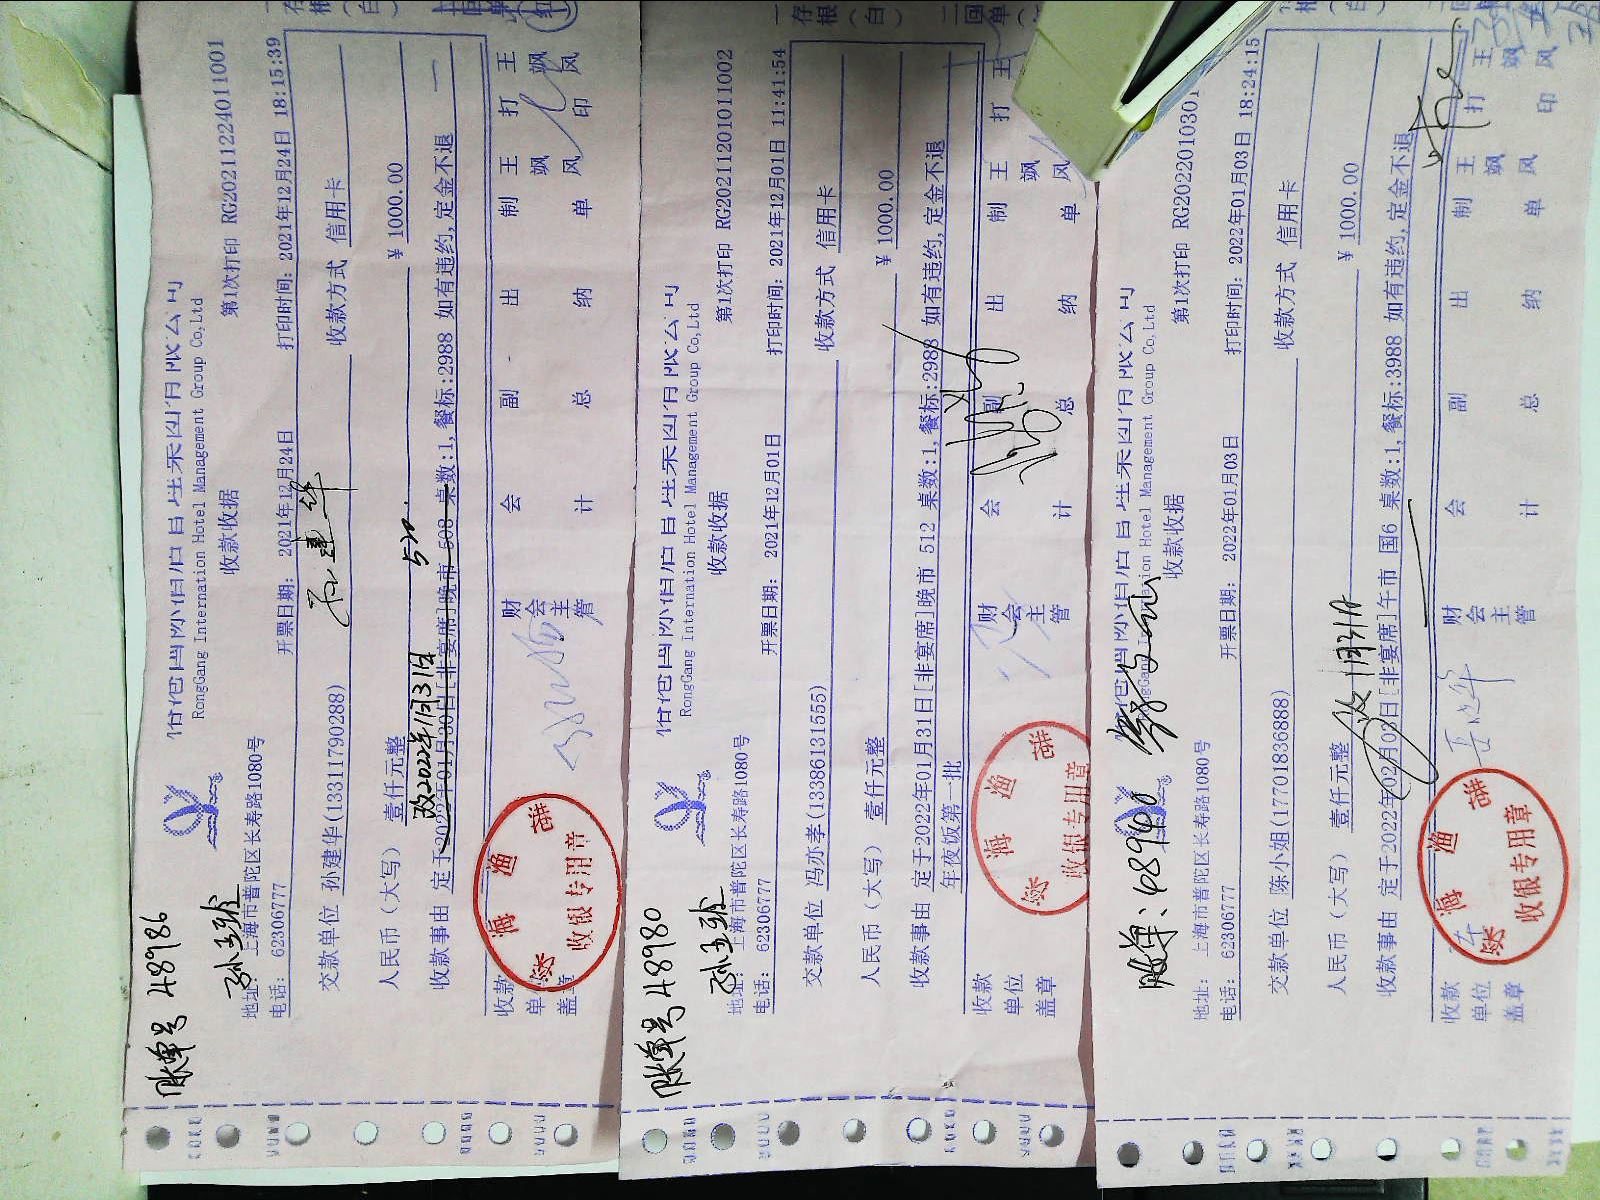 账单号 48986
RongGang International Hotel Management Group Co,Ltd
收款收据
第1次打印 RG20211224011001
地址: 上海市普陀区长寿路1080号
电话: 62306777
开票日期: 2021年12月24日
打印时间: 2021年12月24日 18:15:39
交款单位 孙建华(13311790288)
收款方式 信用卡
人民币(大写) 壹仟元整
¥ 1000.00
改2022年1月31日 520.
收款事由 定于2022年01月30日[非宴席]晚市 508 桌数:1,餐标:2988 如有违约,定金不退
收款单位盖章
财会主管
会计
副总
出纳
制单 王飒风
打印 王飒风
收银专用章
存根(白)
账单号 48980
RongGang International Hotel Management Group Co,Ltd
收款收据
第1次打印 RG20211201011002
地址: 上海市普陀区长寿路1080号
电话: 62306777
开票日期: 2021年12月01日
打印时间: 2021年12月01日 11:41:54
交款单位 冯亦孝(13386131555)
收款方式 信用卡
人民币(大写) 壹仟元整
¥ 1000.00
收款事由 定于2022年01月31日[非宴席]晚市 512 桌数:1,餐标:2988 如有违约,定金不退
年夜饭第一批
收款单位盖章
财会主管
会计
副总
出纳
制单 王飒风
打 王
收银专用章
一存根(白) 二回单
账单: 48940
RongGang International Hotel Management Group Co,Ltd
收款收据
第1次打印 RG2022010301
地址: 上海市普陀区长寿路1080号
电话: 62306777
开票日期: 2022年01月03日
打印时间: 2022年01月03日 18:24:15
交款单位 陈小姐(17701836888)
收款方式 信用卡
人民币(大写) 壹仟元整
¥ 1000.00
收款事由 定于2022年02月03日[非宴席]午市 国6 桌数:1,餐标:3988 如有违约,定金不退
收款单位盖章
财会主管
会计
副总
出纳
制单 王飒风
打印 王飒风
收银专用章